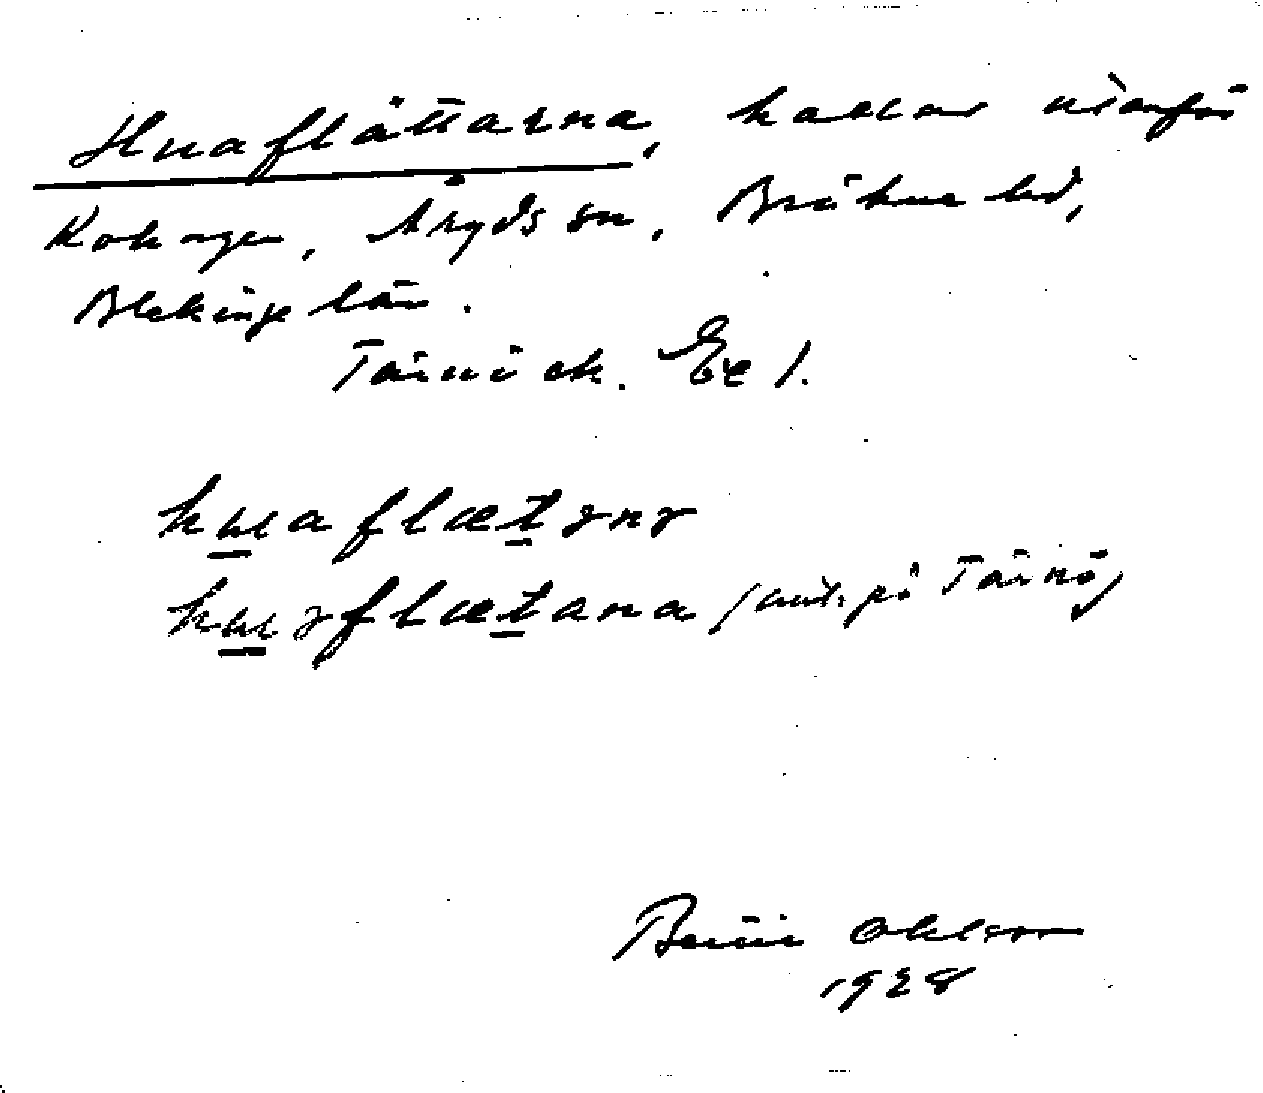 Huaflättarna, hallar utanför
Kokogen, Åryds sn, Bräkne hd,
Blekinge län.
Tärnö ek. Ee 1.
huaflætɘnɘ
huɘflætana (uttr på Tärnö)
Bror Ohlsson
1928